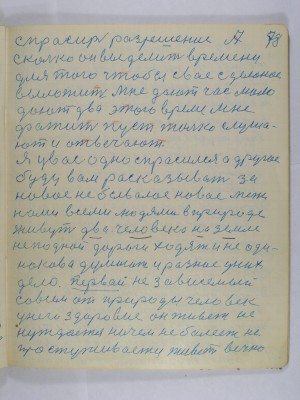 спрасил разрешение А 78
сколко он выделит времени
для того чтобы свае сделоное
выложит мне дают час мало
дают два этого время мне
фатит пуст толко слуша-
ют и отвечают.
Я у вас одно спрасился а другое
буду вам расказыват за
новое небывалое новое меж
нами всеми людями в природе
живут два человека на земле
неподной дороги ходят и не оди-
накова думают и разное у них
дело. Первай не зависемый
совсем от природы человек
унего здоровие он живет не
нуждается ничем не балеет не
простуживаету живет вечно